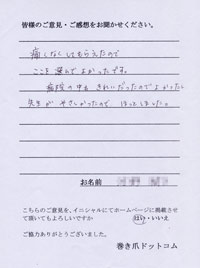 皆様のご意見・ご感想をお聞かせください。
痛くなくしてもらえたので
ここを選んでよかったです。
病院の中も きれいだったのでよかったし
先生が やさしかったので、ほっとしました。
お名前
こちらのご意見を、イニシャルにてホームページに掲載させ
て頂いてもよろしいですか はい・いいえ
ご協力ありがとうございました。
巻き爪ドットコム